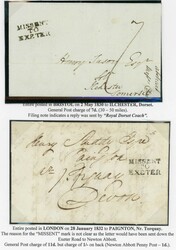 MISSENT
TO
EXETER
7
Henry
Ilchester
Somerset
Entire posted in BRISTOL on 2 May 1830 to ILCHESTER, Dorset.
General Post charge of 7d. (30 - 50 miles).
Filing note indicates a reply was sent by "Royal Dorset Coach".
Henry
MISSENT
TO
EXETER
Torquay
Devon
Entire posted in LONDON on 28 January 1832 to PAIGNTON, Nr. Torquay.
The reason for the "MISSENT" mark is not clear as the letter would have been sent down the
Exeter Road to Newton Abbott.
General Post charge of 11d. but charge of 1/- on back (Newton Abbott Penny Post - 1d.).